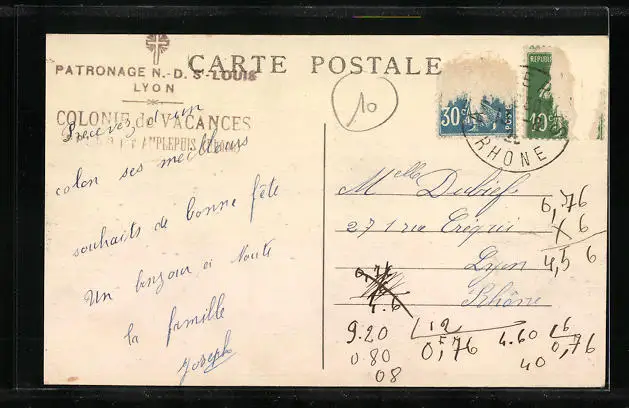 PATRONAGE N.-D. St-LOUIS
LYON
COLONIE de VACANCES
AMPLEPUIS
CARTE POSTALE
10
30c
POSTES
REPUBLI
10c
RHONE
Recevez d'un
colon ses meilleurs
souhaits de bonne fête
Un bonjour à toute
la famille
Joseph
Melle Dubief
271 rue Créqui
Lyon
Rhône
0,76
x 6
4,5 6
0,76
4.6
9.20 12
0.80 0,76
08
4.60 6
40 0,76